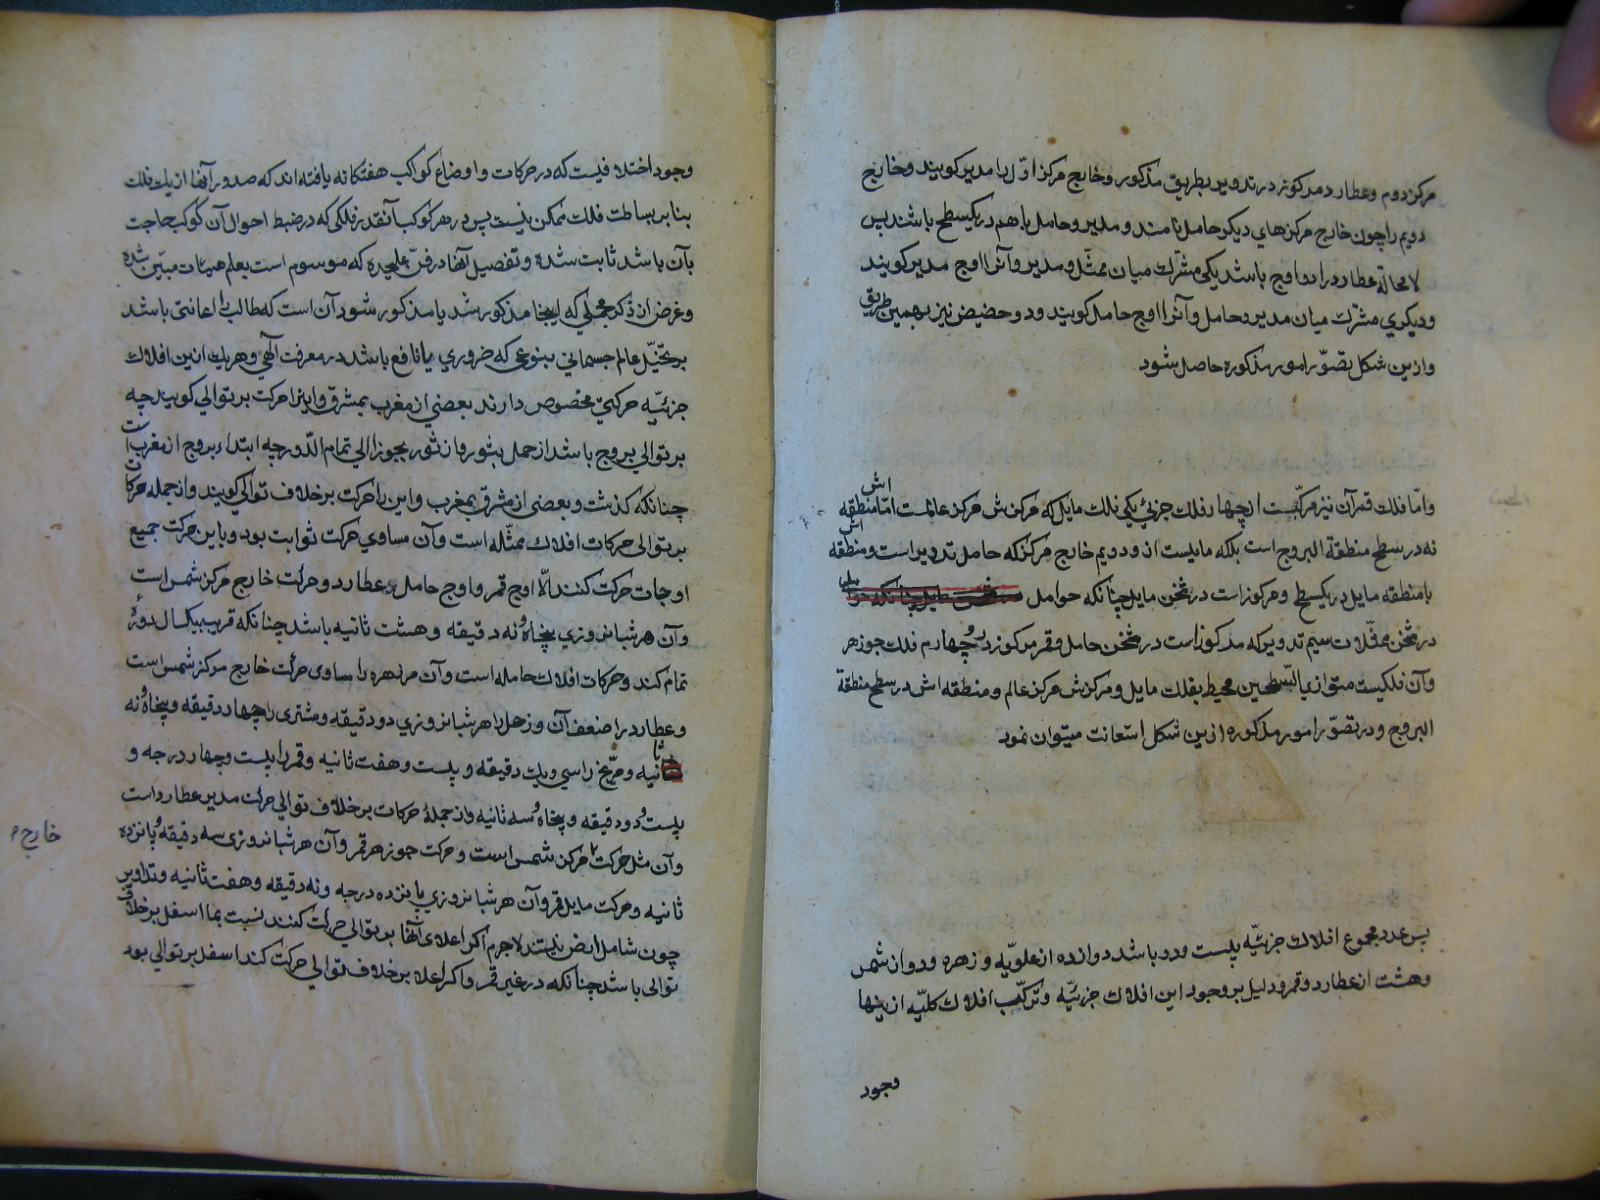 مرکز دوم و عطارد مرکوز در تدویر بطریق مذکور و خارج مرکز اوّل را مدیر کویند و خارج
دویم را چون خارج مرکزهای دیکر حامل نامند و مدیر و حامل با هم در یکسطح باشند پس
لا محاله عطارد را دو اوج باشد یکی مشترک میان ممثّل و مدیر و آنرا اوج مدیر کویند
و دیکری مشترک میان مدیر و حامل و آنرا اوج حامل کویند و دو حضیض نیز بهمین طریق
و ازین شکل تصوّر امور مذکوره حاصل شود
و امّا فلک قمر آن نیز مرکّبست از چهار فلک جزئی یکی فلک مایل که مرکزش مرکز عالمست امّا منطقه اش
نه در سطح منطقة البروج است بلکه مایلست از و دویم خارج مرکز که حامل تدویر است و منطقه اش
با منطقه مایل در یکسطح و مرکوز است در ثخن مایل چنانکه حوامل
در ثخن ممثّلات سیم تدویر که مذکوز است در ثخن حامل و قمر مرکوز در و چهارم فلک جوزهر
و آن فلکیست متوازی السّطحین محیط بفلک مایل و مرکزش مرکز عالم و منطقه اش در سطح منطقة
البروج و در تصوّر امور مذکوره ازین شکل استعانت میتوان نمود
پس عدد مجموع افلاک جزئیّه بیست و دو باشد دوازده از علویّه و زهره و دو از شمس
و هشت از عطارد و قمر و دلیل بر وجود این افلاک جزئیّه و ترکّب افلاک کلیّه ازینها
وجود
وجود اختلافیست که در حرکات و اوضاع کواکب هفتکانه یافته اند که صدور آنها از یک فلک
بنا بر بساطت فلک ممکن نیست پس در هر کوکب آنقدر فلکی که در ضبط احوال آن کوکب حاجت
بآن باشد ثابت شده و تفصیل آنها در فنّ علیحده که موسوم است بعلم هیئات مبیّن شده
و غرض از ذکر مجملی که اینجا مذکور شد یا مذکور شود آن است که طالب را اعانتی باشد
بر تخیّل عالم جسمانی بنوعی که ضروری یا نافع باشد در معرفت آلهی و هر یک ازین افلاک
جزئیّه حرکتی مخصوص دارند بعضی از مغرب بمشرق و اینرا حرکت بر توالی کویند چه
بر توالی بروج باشد از حمل بثور و از ثور بجوزا الی تمام الدّور چه ابتداء بروج از مغرب است
چنانکه کذشت و بعضی از مشرق بمغرب و این را حرکت بر خلاف توالی کویند و از جمله حرکات
بر توالی حرکات افلاک ممثّله است و آن مساوی حرکت ثوابت بود و باین حرکت جمیع
اوجات حرکت کنند الّا اوج قمر و اوج حامل عطارد و حرکت خارج مرکز شمس است
و آن هر شبانروزی پنجاه و نه دقیقه و هشت ثانیه باشد چنانکه قریب بیکسال دورۀ
تمام کند و حرکات افلاک حامله است و آن مر زهره را مساوی حرکت خارج مرکز شمس است
و عطارد را ضعف آن و زحل را هر شبانروزی دو دقیقه و مشتری را چهار دقیقه و پنجاه و نه
ثانیه و مرّیخ را سی و یک دقیقه و بیست و هفت ثانیه و قمر را بیست و چهار درجه و
بیست و دو دقیقه و پنجاه و سه ثانیه و از جملۀ حرکات بر خلاف توالی حرکت مدیر عطارد است
و آن مثل حرکت مرکز شمس است و حرکت جوزهر قمر و آن هر شبانروزی سه دقیقه و یانزده
خارج م
ثانیه و حرکت مایل قمر و آن هر شبانروزی یانزده درجه و نه دقیقه و هفت ثانیه و تداویر
چون شامل ارض نیستند لا جرم اکر اعلای آنها بر توالی حرکت کنند نسبت بما اسفل بر خلاف
توالی باشد چنانکه در غیر قمر و اکر اعلا بر خلاف توالی حرکت کند اسفل بر توالی بود